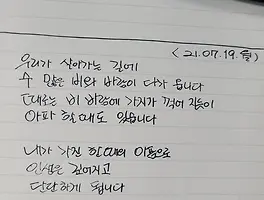 < 21.07.19.월)
우리가 살아가는 길에
수 많은 비와 바람이 다가 옵니다
때로는 비 바람에 가지가 꺾여 지듯이
아파 할 때도 있습니다
내가 가진 한때의 아픔으로
인생은 깊어지고
단단하게 됩니다